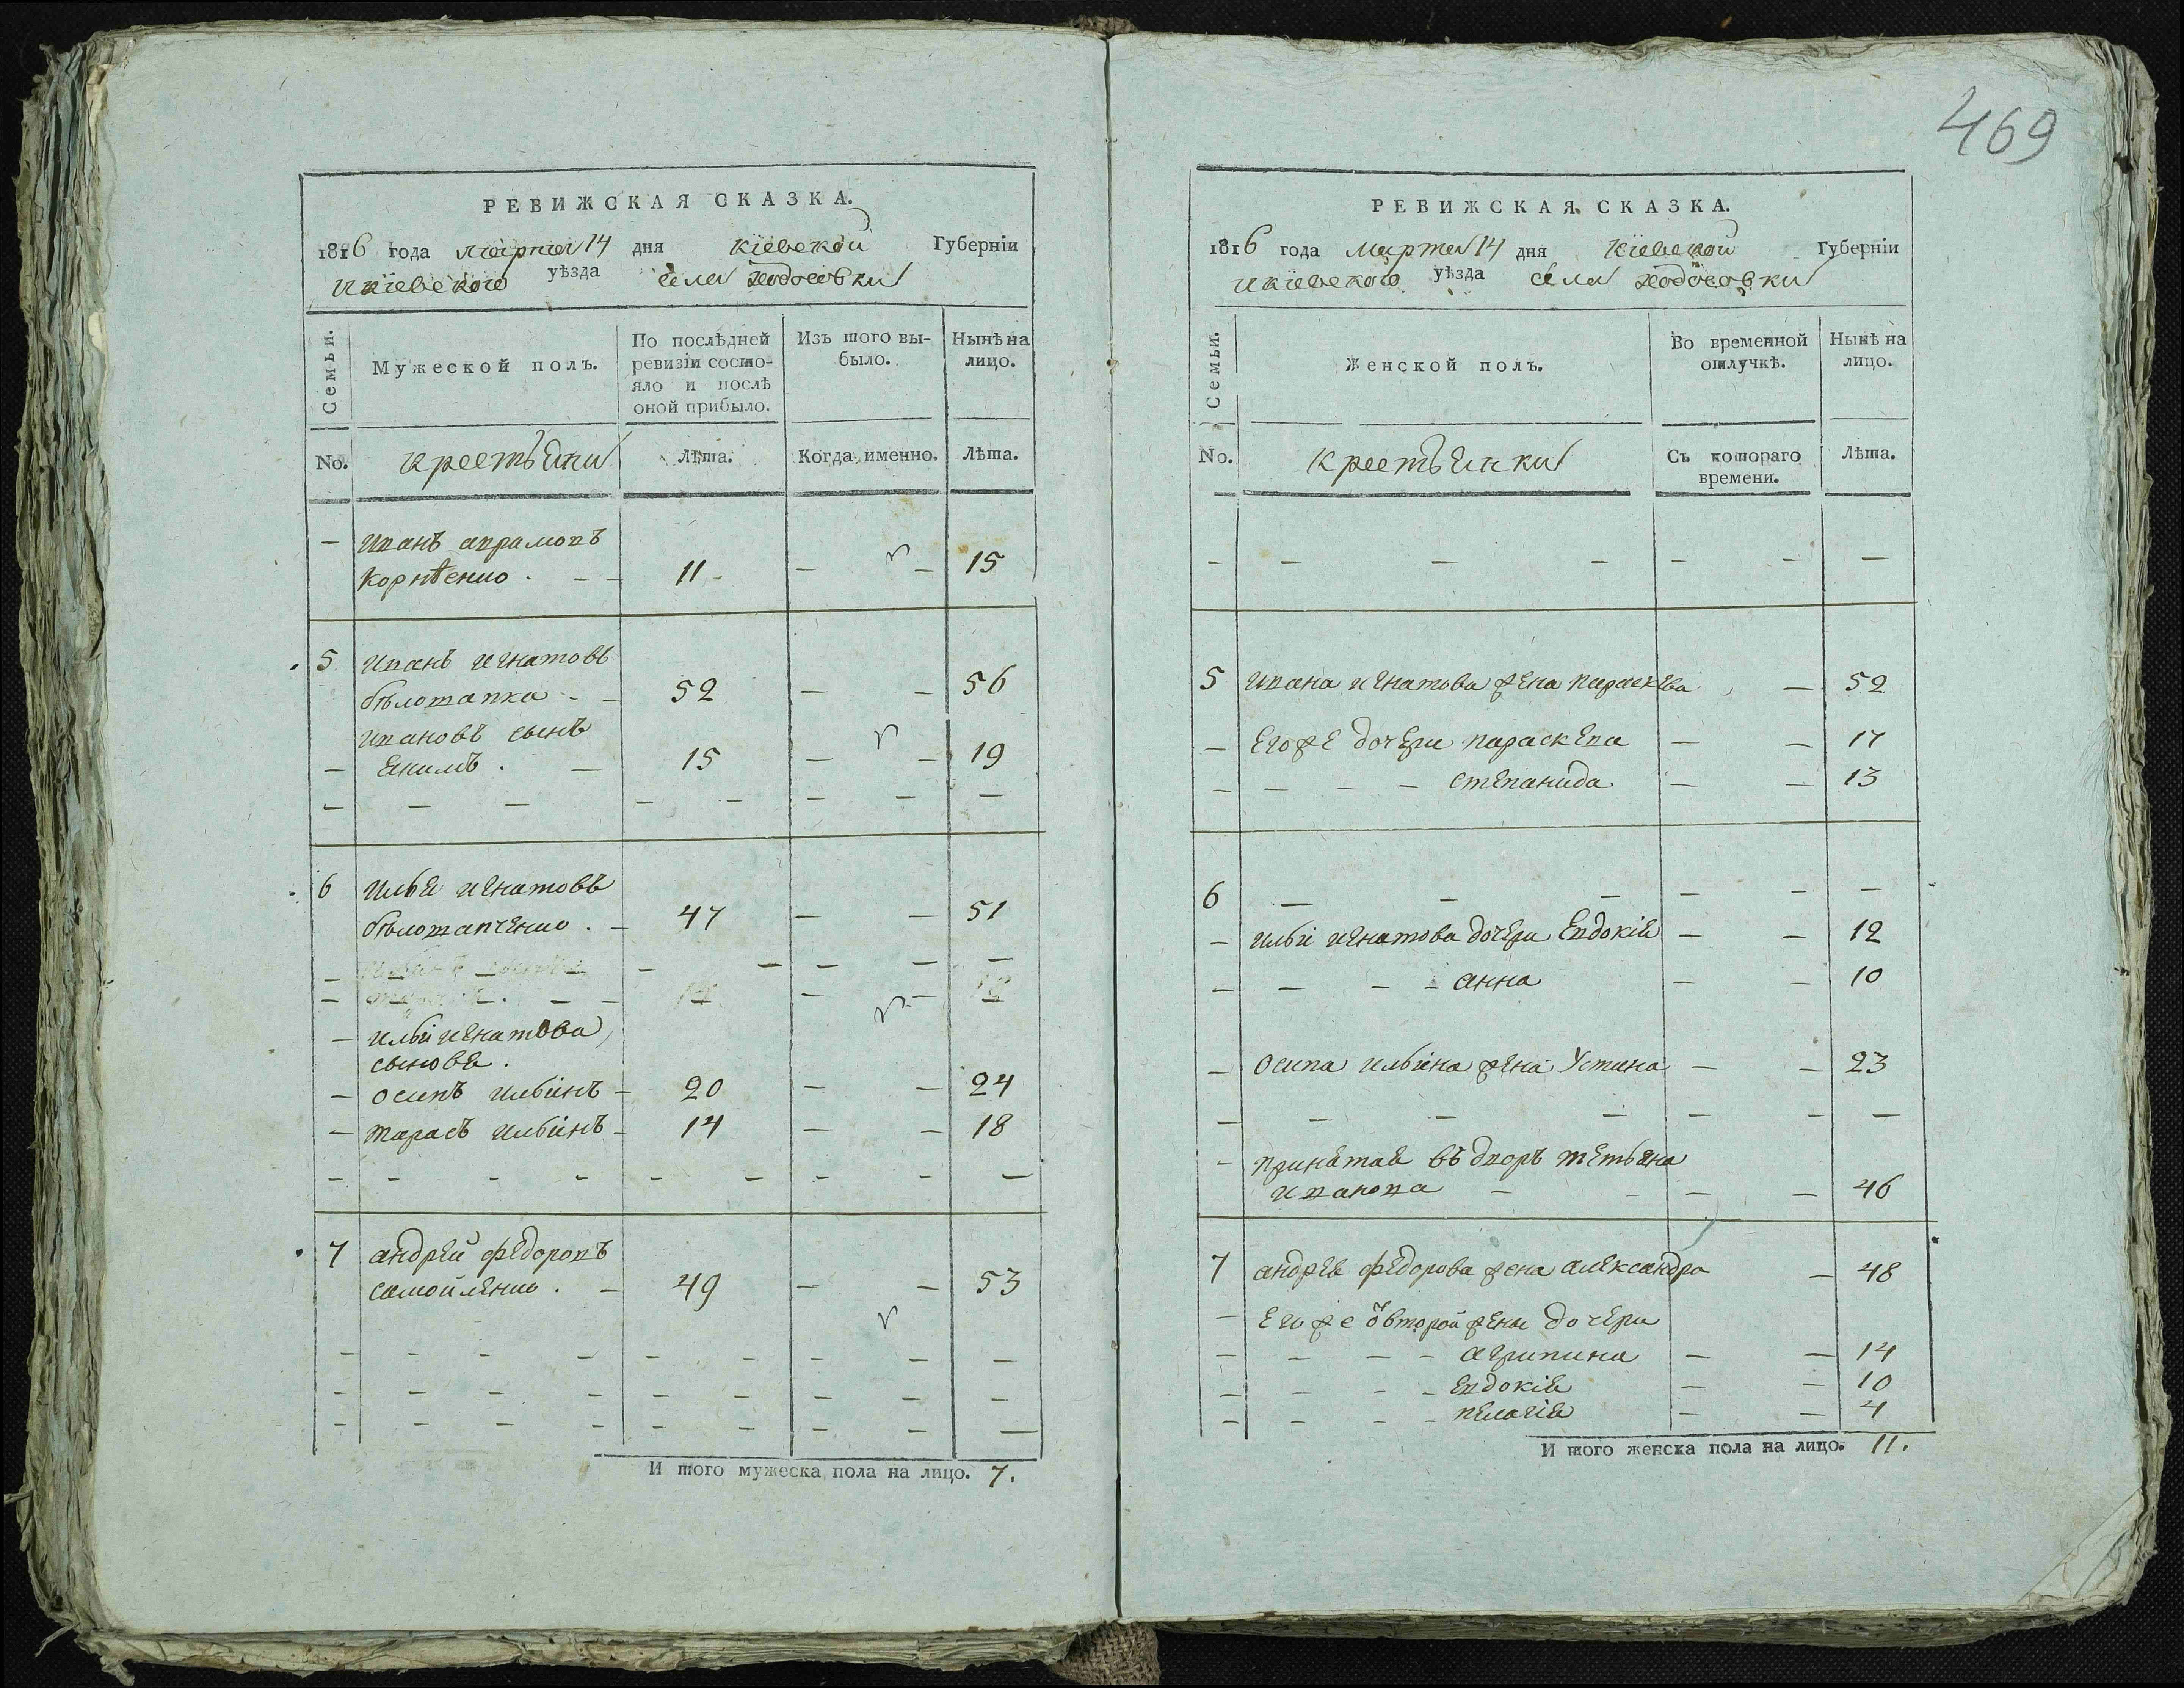 469
РЕВИЖСКАЯ СКАЗКА.
1816 года марта 14 дня Кіевской Губерніи
Икіевского уѣзда села Ходосовки
Семьи.
Мужеской полъ.
По послѣдней ревизіи состояло и послѣ оной прибыло.
Изъ того выбыло.
Нынѣ на лицо.
No.
крестьяни
Лѣта.
Когда именно.
Лѣта.
— Иванъ аврамовъ
Корнѣенко . — — 11 — — 15
5 Иванъ игнатовъ
бѣлошапка — — 52 — — 56
Ивановъ сынъ
— Якимъ . — 15 — — 19
— — — — — — — —
6 Илья игнатовъ
бѣлошапченко . — 47 — — 51
— Ильи игнатова
сыновя .
— осипъ ильинъ — 20 — — 24
— тарасъ ильинъ — 14 — — 18
— — — — — — — — —
7 андрей федоровъ
самойленко . — 49 — — 53
— — — — — — — — —
— — — — — — — — —
— — — — — — — — —
И того мужеска пола на лицо. 7.
РЕВИЖСКАЯ СКАЗКА.
1816 года марта 14 дня Кіевской Губерніи
Икіевского уѣзда села Ходосовки
Семьи.
Женской полъ.
Во временной отлучкѣ.
Нынѣ на лицо.
No.
крестьянки
Съ котораго времени.
Лѣта.
— — — — — — —
5 Ивана игнатова жена параскева — 52
— Егоже дочери параскева — — 17
— — — — степанида — — 13
6 — — — — — —
— ильи игнатова дочери Евдокія — — 12
— — — — анна — — 10
— осипа ильина жена Устина — — 23
— — — — — — —
— принятая въ дворъ тетьяна
иванова — — — — 46
7 андрея федорова жена александра — 48
— Егоже от второй жены дочери
— — — — агрипина — — 14
— — — — евдокія — — 10
— — — — пелагія — — 4
И того женска пола на лицо. 11.